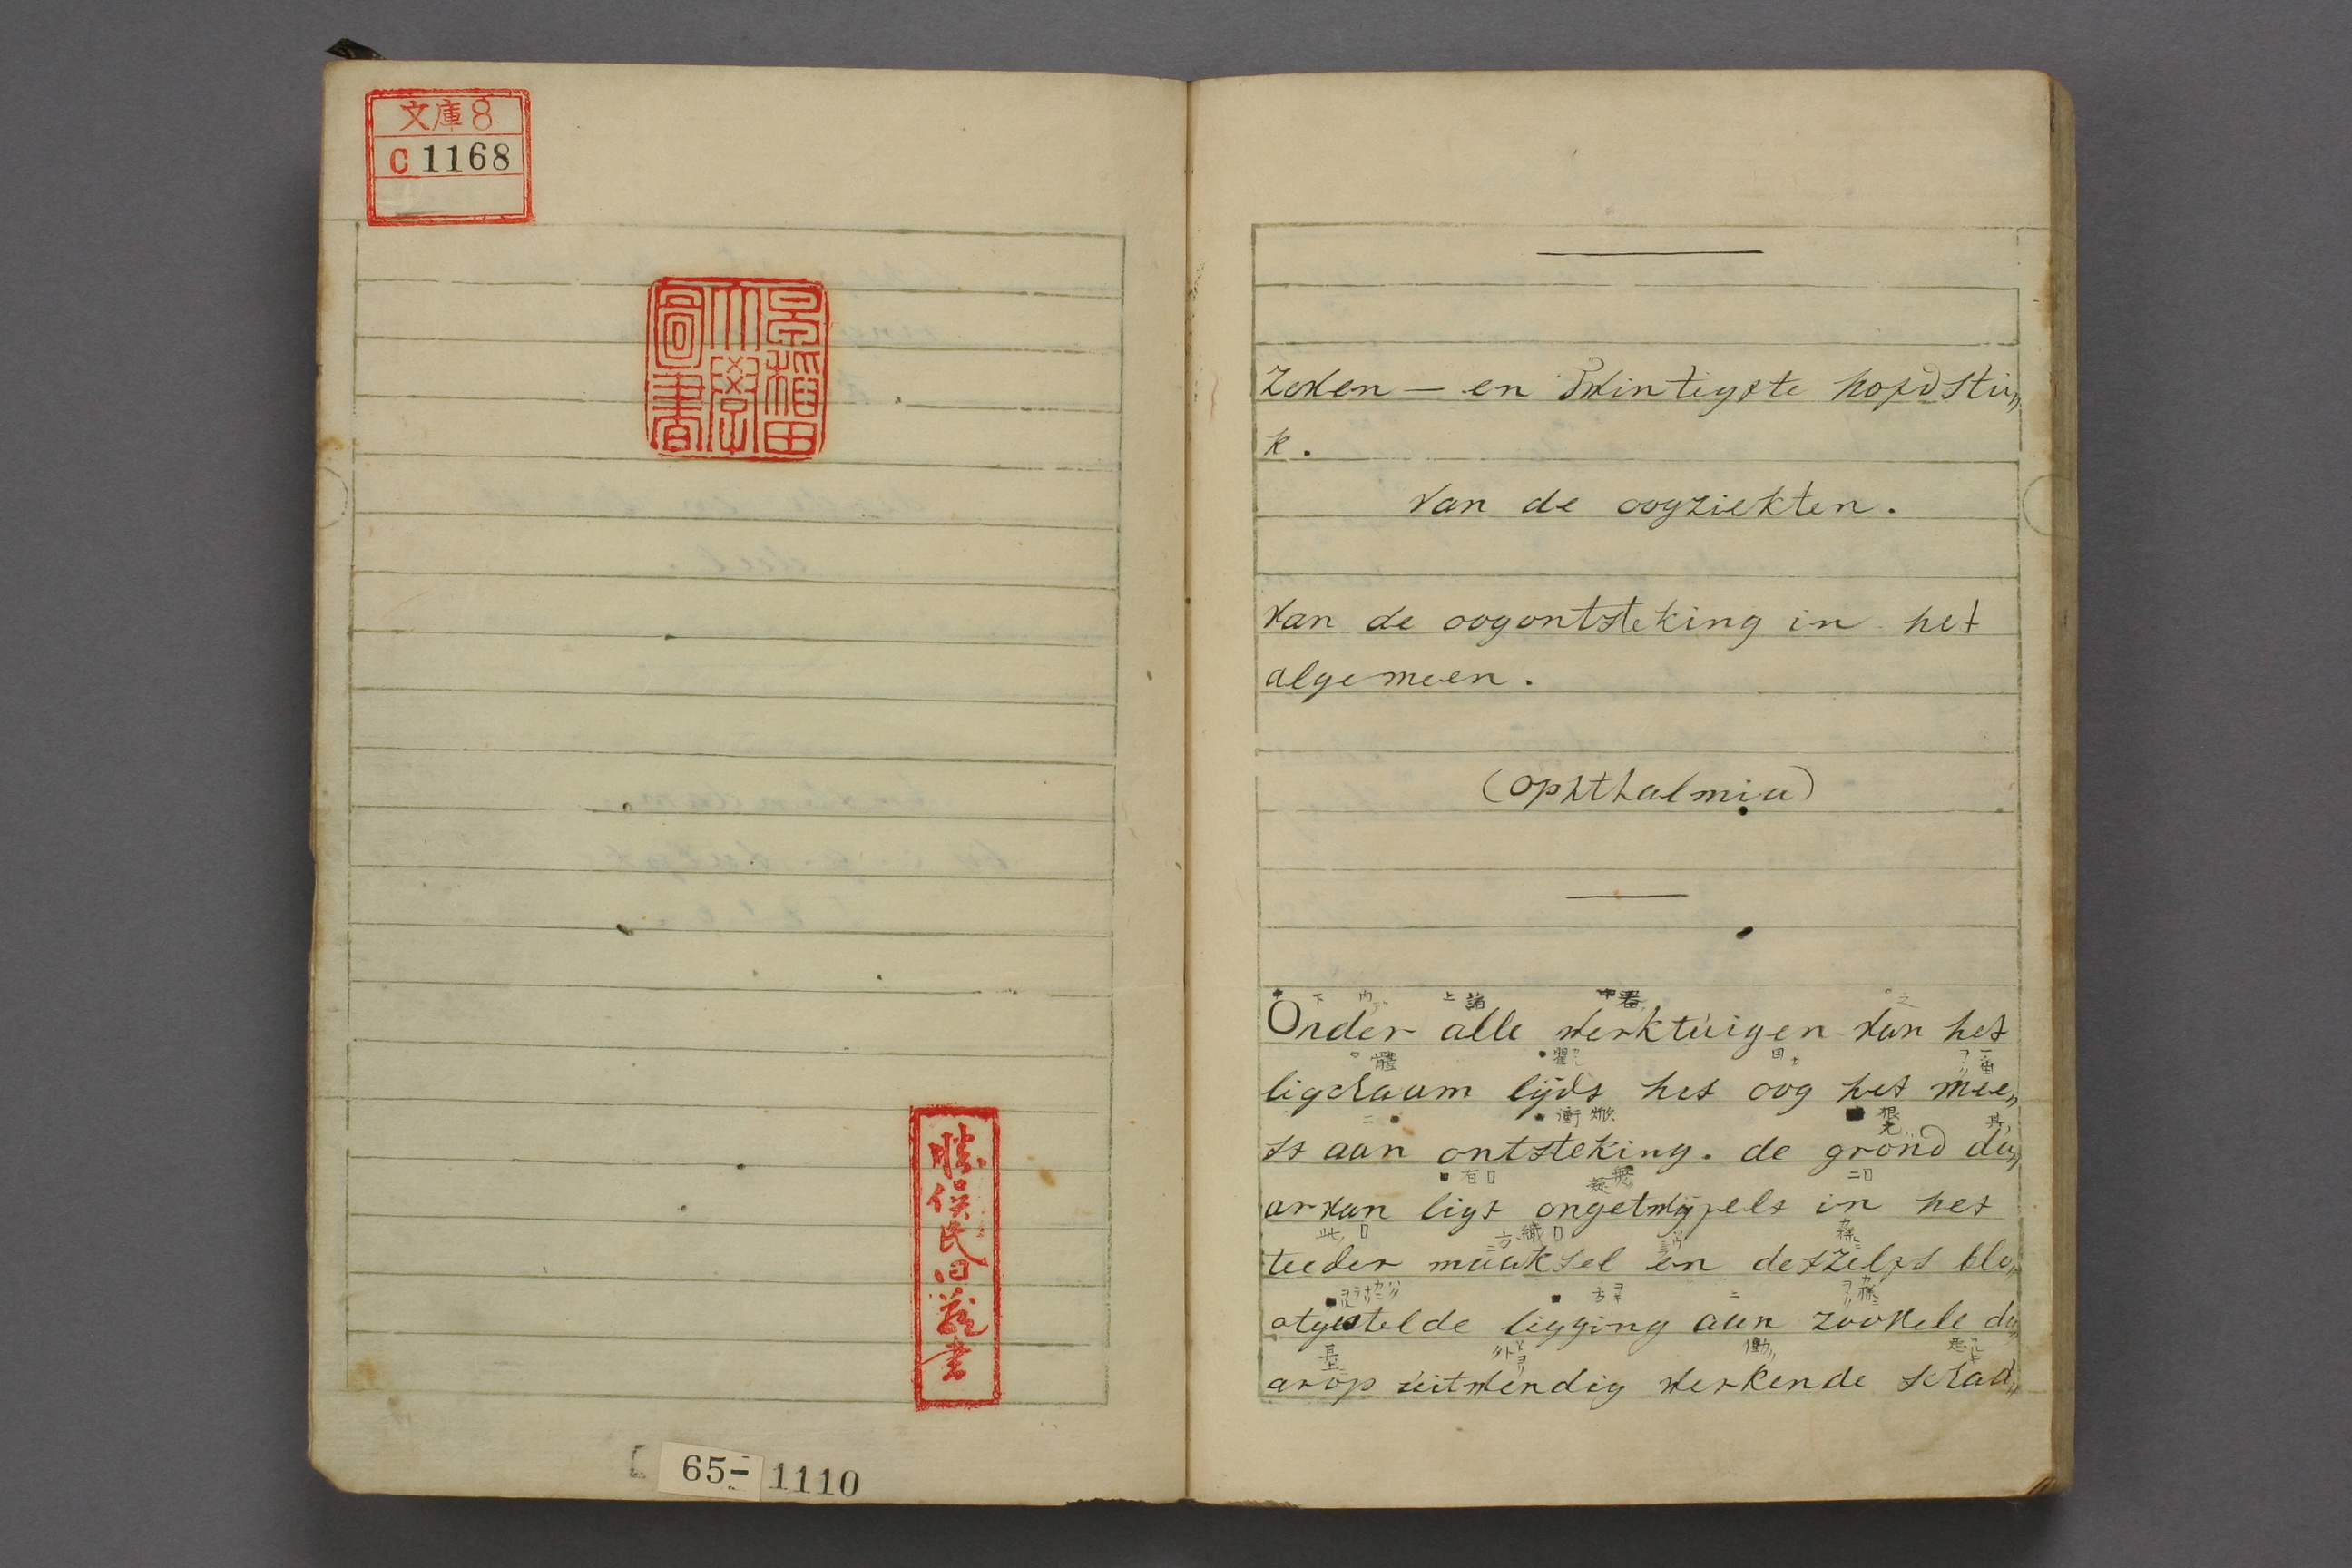 文庫8
C1168
早稲田
大學
圖書
勝俣氏旧蔵書
65-1110
Zeven — en Twintigste hoofdstu„
k.
van de oogziekten.
van de oogontsteking in het
algemeen.
(ophthalmia)
Onder alle werktuigen van het
ligchaam lijds het oog het mee„
st aan ontsteking. de grond da„
arvan ligt ongetwijfels in het
teeder maaksel en deszelfs blo„
otgestelde ligging aan zoovele da„
arop uitwendig werkende schad„